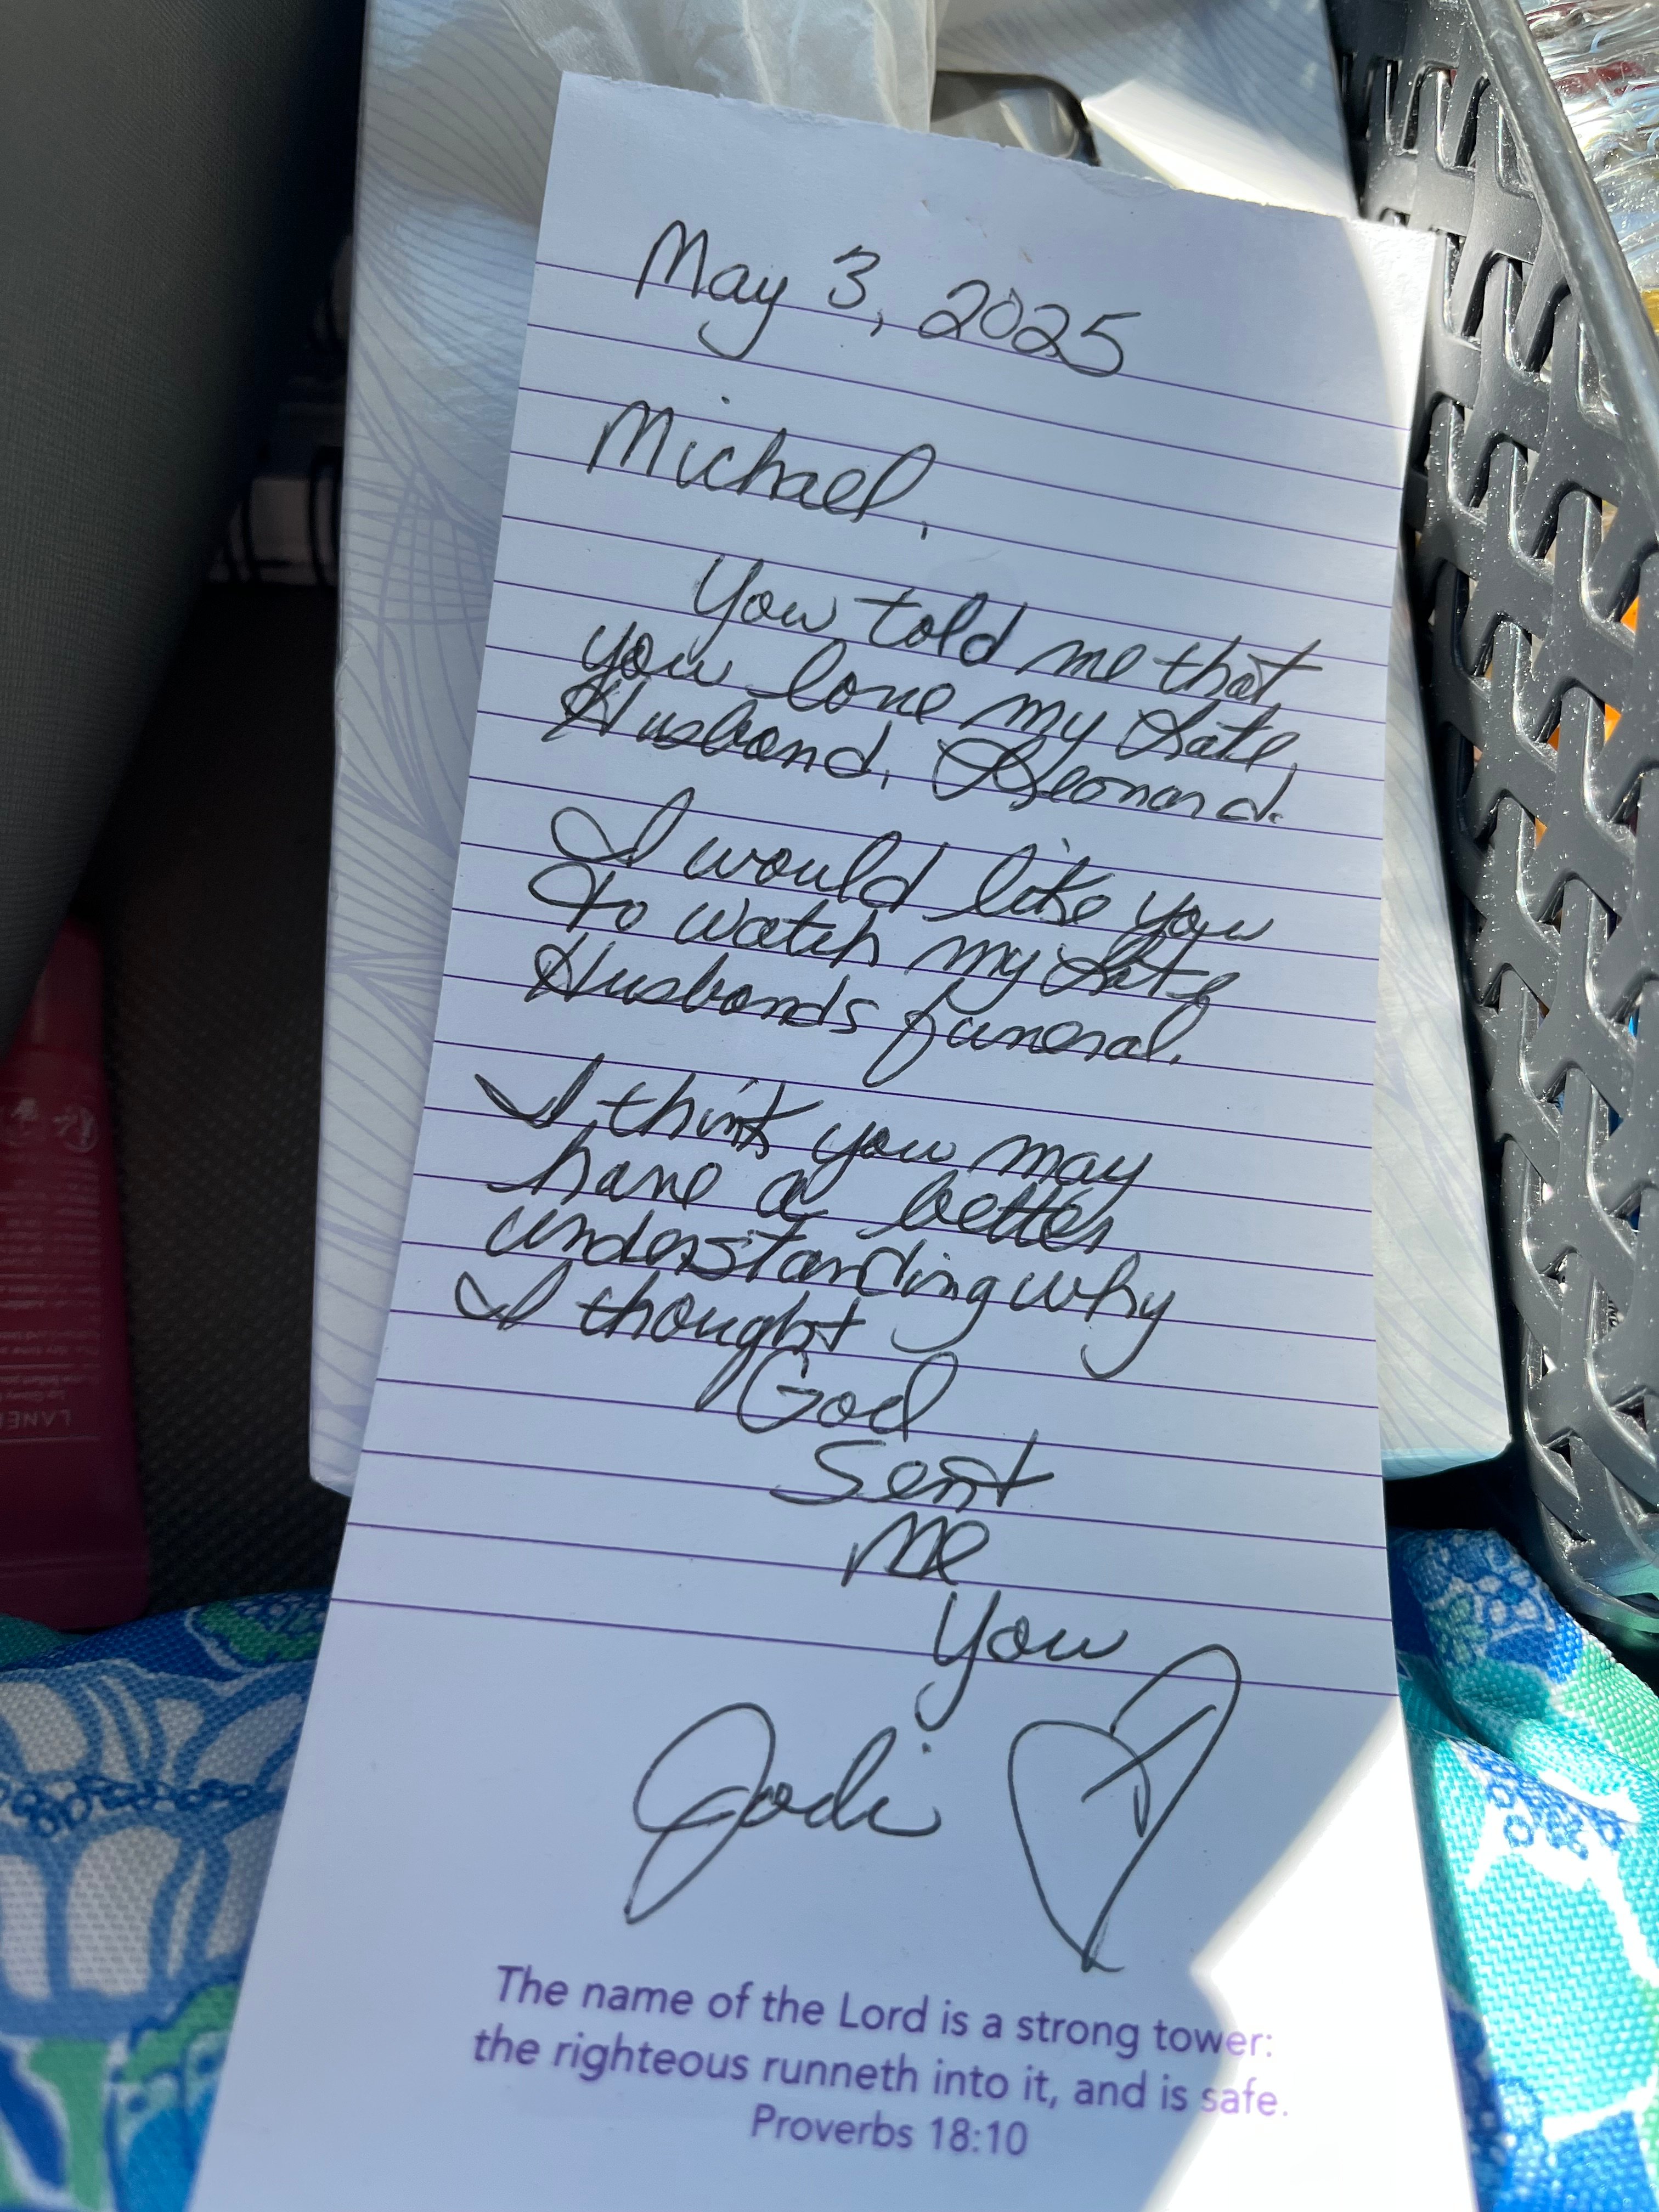 May 3, 2025
Michael,
You told me that
you love my Late
Husband, Leonard.
I would like you
to watch my Late
Husbands funeral.
I think you may
have a better
understanding why
I thought
God
Sent
me
you
Jodi
The name of the Lord is a strong tower:
the righteous runneth into it, and is safe.
Proverbs 18:10
LANE